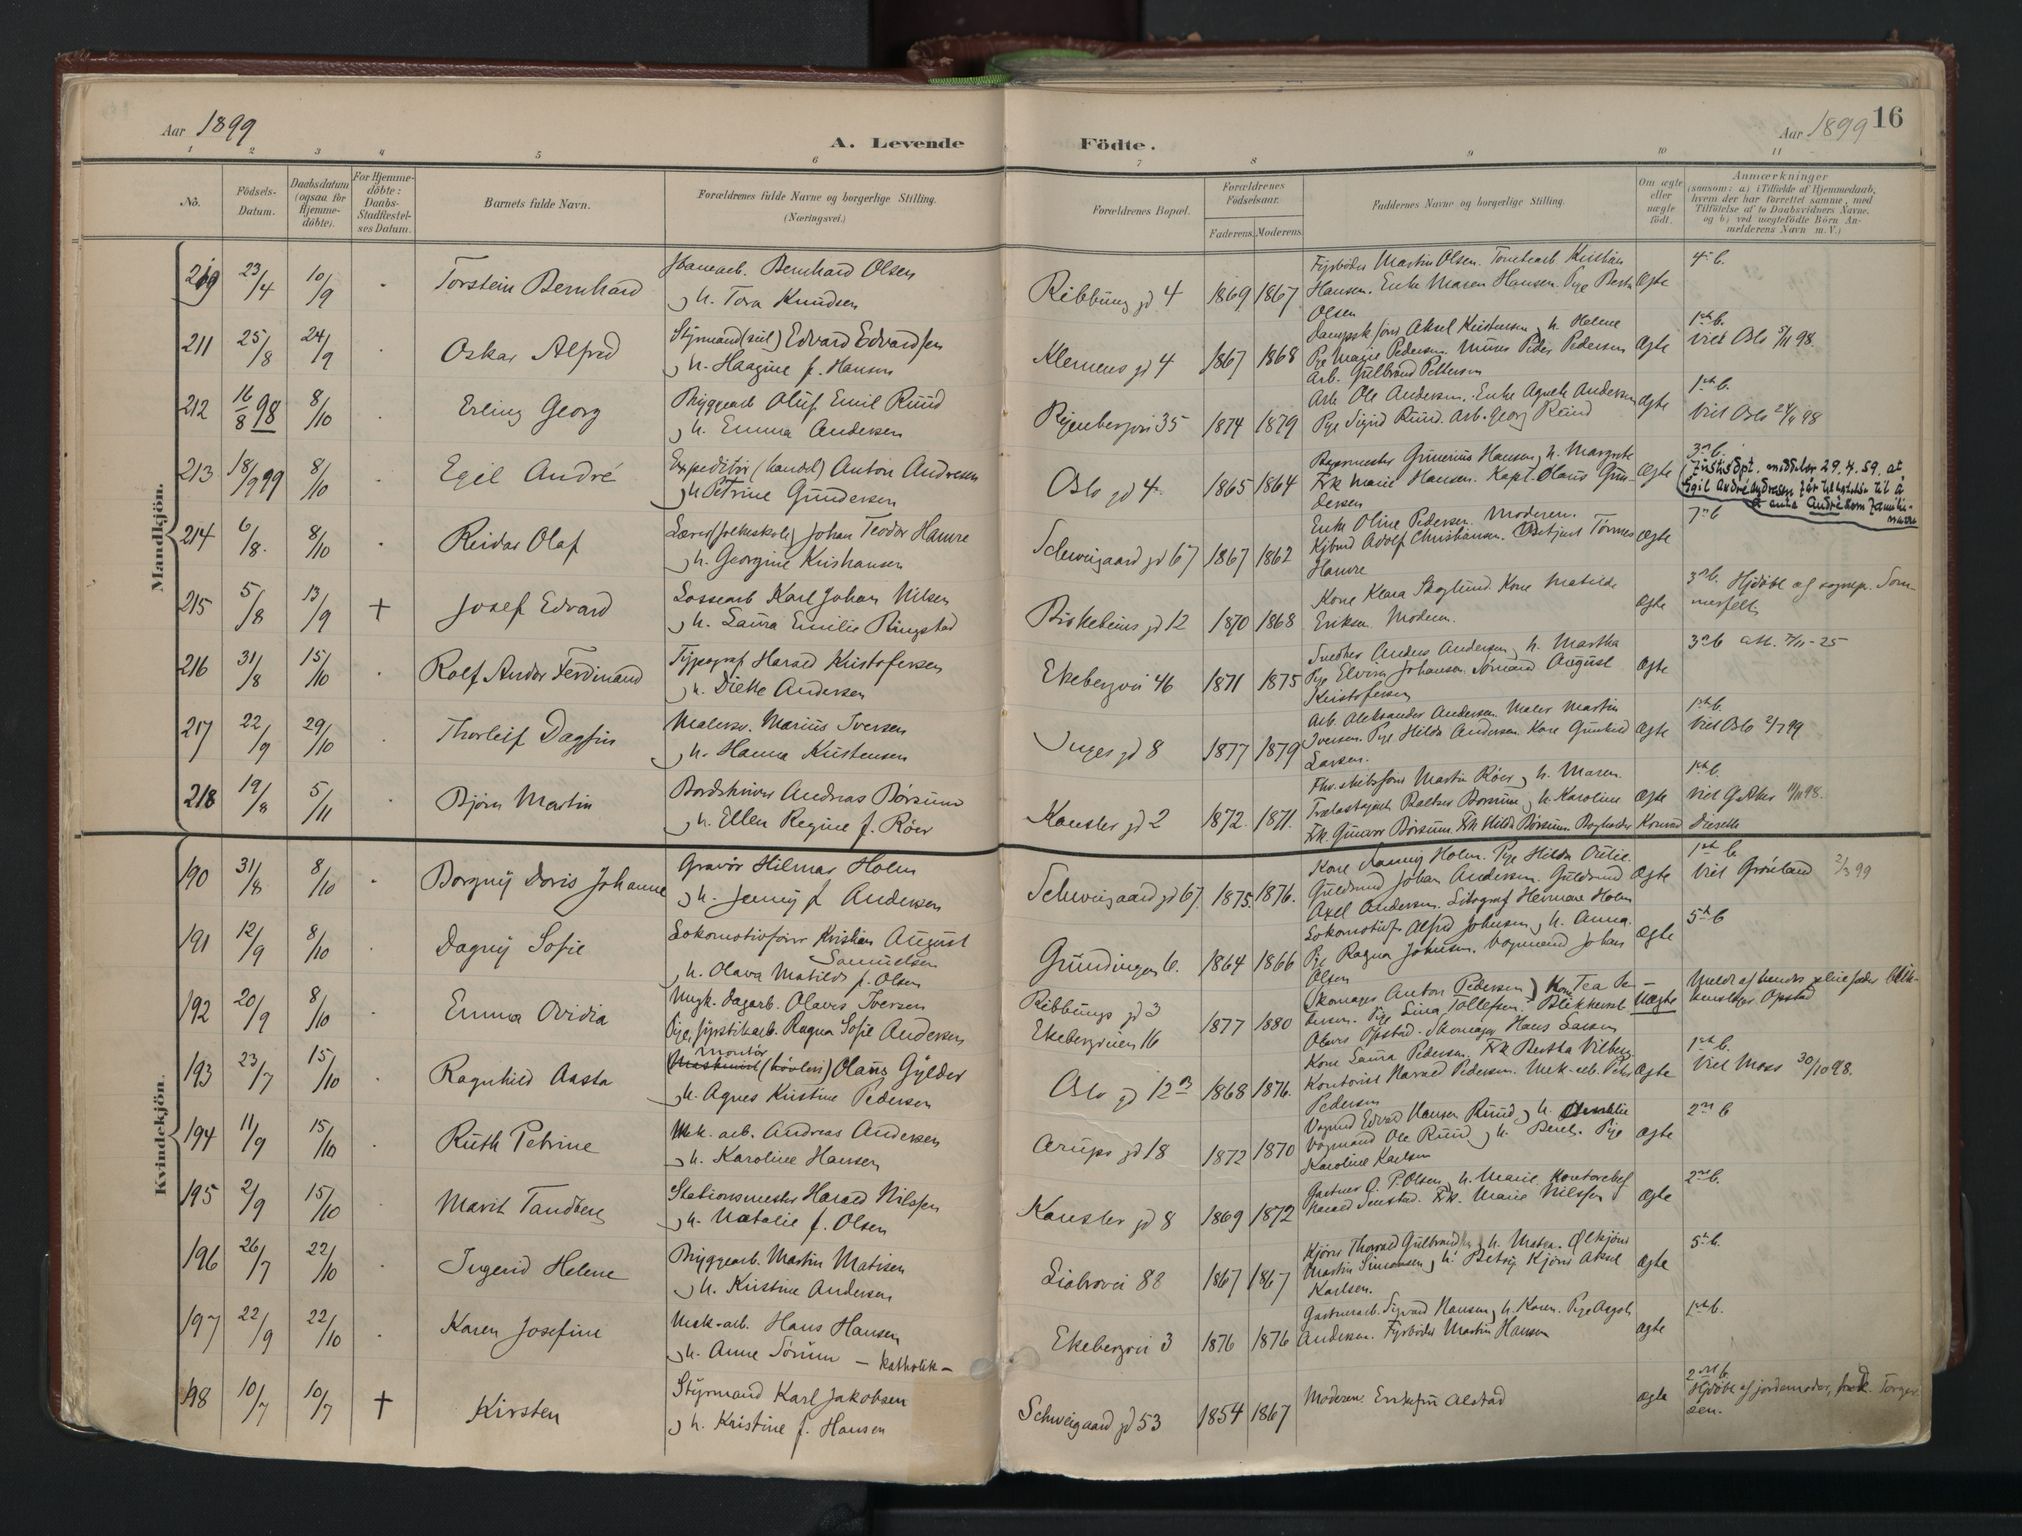 Aar 1899
A. Levende
Födte.
Aar 1899 16
1 2 3 4 5 6 7 8 9 10 11
No.
Födsels-
Datum.
Daabsdatum
(ogsaa for
Hjemme-
döbte).
For Hjemme-
döbte:
Daabs-
Stadfæstel-
ses Datum.
Barnets fulde Navn.
Forældrenes fulde Navne og borgerlige Stilling.
(Næringsvei.)
Forældrenes Bopæl.
Forældrenes
Födselsaar.
Faderens. Moderens.
Faddernes Navne og borgerlige Stilling.
Om ægte
eller
uægte
födt.
Anmærkninger
(saasom: a) i Tilfælde af Hjemmedaab,
hvem der har forrettet samme, med
Tilföielse af to Daabsvidners Navne,
og b) ved uægtefödte Börn An-
melderens Navn m. V.)
Mandkjön.
23/4 10/9 Torstein Bernhard
Bernhard Olsen
h. Tora Knudsen
Ribbung gd 4 1869 1867
Fyrböder Martin Olsen. Kristian
Hansen. Enke Maren Hansen. Pige Berta
Olsen
Ægte
4 b.
211 25/8 24/9 Oskar Alfred
Styrmand (seil) Edvard Edvardsen
h. Haagine f. Hansen
Klemens gd 4 1867 1868
Aksel Kristensen h. Helene
Pige Marie Pedersen. Murer Peder Pedersen
Arb. Gulbrand Pettersen
Ægte
1ste b.
Viet Oslo 5/11 98.
212 16/8 98 8/10 Erling Georg
Bryggearb Oluf Emil Ruud
h. Emma Andersen
Ryenbergvei 35 1874 1879
Arb Ole Andersen. Enke Agnete Andersen
Pige Sigrid Ruud. Arb. Georg Ruud
Ægte
1ste b.
Viet Oslo 98
213 18/9 99 8/10 Egil André
Expeditör (handel) Anton Andresen
h Petrine Gundersen
Oslo gd 4 1865 1864
Grunerius Hansen h. Margrete
Frk Marie Hansen. Kapt. Olaus Gun-
dersen
Ægte
3 b.
Justisdpt. meddeler 29.4.59. at
Egil André Andresen får til å
anta André som familie-
navn
214 6/8. 8/10 Reidar Olaf
Lærer (folkeskole) Johan Teodor Hamre
h. Georgine Kristiansen
Schweigaard gd 67 1867 1862
Enke Oline Pedersen. Moderen.
Kjbmd Adolf Christiansen. Tönnes
Hamre
Ægte
7 b
215 5/8 13/9 + Josef Edvard
Lossearb Karl Johan Nilsen
h. Laura Emilie Ringstad
Birkebeins gd 12 1870 1868
Kone Klara Skoglund. Kone Matilde
Eriksen. Moderen.
Ægte
3 b. Hjdöbt af sognepr. Som-
merfelt
216 31/8 15/10 Rolf Andor Ferdinand
Typograf Harald Kristofersen
h. Dikke Andersen
Ekebergvei 46 1871 1875
Snedker Anders Andersen h. Martha
Pige Elvira Johansen. Sömand August
Kristofersen
Ægte
3 b att. 7/11-25
217 22/9 29/10 Thorleif Dagfin
Malersv. Marius Iversen
h. Hanna Kristensen
Inges gd 8 1877 1879
Arb. Aleksander Andersen. Maler Martin
Iversen. Pige Hilda Andersen. Kone Gunhild
Larsen.
Ægte
1ste b.
Viet Oslo 2/7 99
218 19/8 5/11 Björn Martin
Bordskriver Andreas Börsum
h. Ellen Regine f. Röer
Kansler gd 2 1872. 1871.
Martin Röer h. Maren.
Baltser Borsum h. Karoline
Frk. Gunvor Börsum. Frk Hilda Börsum. Bogholder Konrad Diesette
Ægte
1ste b.
Viet G. Aker 98.
Kvindekjön.
190 31/8 8/10 Borgny Doris Johanne
Gravör Hilmar Holm
h. Jenny f. Andersen
Schweigaard gd 67. 1875. 1876.
Kone Fanny Holm. Pige Hilda Outie.
Guldsmd Johan Andersen. Guldsmd
Axel Andersen. Litograf Herman Holm
Ægte
1ste b.
Viet Grönland 2/3 99
191 12/9 8/10 Dagny Sofie
Lokomotivförer Kristian August
Samuelsen
h. Olava Matilde f. Olsen
Gründingen 6. 1864 1866
Lokomotivf Alfred Johnsen h. Anna.
Pige Ragna Johnsen. Vognmand Johan
Olsen
Ægte
5te b
192 20/9 8/10 Emma Ovidia
Mek. dagarb. Olavis Iversen
Pige, fyrstikarb. Ragna Sofie Andersen
Ribbungs gd 3
Ekebergveien 16 1877 1880
Skomager Anton Pedersen) Kone Tea Pe-
tersen. Pige Lina Tollefsen. Blikkensl
Olavis Opstad. Skomager Hans Larsen
Uægte
Opstad
193 23/7 15/10 Ragnhild Aasta
montör
Maskinist (hövleri) Olaus Gylder
h. Agnes Kristine Pedersen
Oslo gd 12 B 1868 1876.
Kone Laura Pedersen. Frk Bertha Vilberg
Kontorist Harald Pedersen. Mek-arb. Peder
Pedersen
Ægte
1ste b.
Viet Moss 30/10 98.
194 11/9 15/10 Ruth Petrine
Mek. arb. Andreas Andersen
h. Karoline Hansen
Arups gd 18 1872 1870
Vogmd Edvard Hansen Ruud h.
Vogmand Ole Ruud h. Berte. Pige
Karoline Karlsen
Ægte
2 b
195 2/9 15/10 Marit Tandberg
Stationsmester Harald Nilssen
h. Natalie f. Olsen
Kansler gd 8 1869 1872
Gartner O. P. Olsen h. Marie. Kontorchef
Harald Frk. Marie Nilssen
Ægte
2 b.
196 26/7 22/10 Ingerid Helene
Bryggearb. Martin Matisen
h. Kristine Andersen
Liabrovei 88 1867 1867
Kjörer Thorvald Gulbrandsen h. Mattea.
Martin Simonsen h. Betsy Kjörer Aksel
Karlsen.
Ægte
5te b.
197 22/9 22/10 Karen Josefine
Mek-arb. Hans Hansen
h. Anne Sörum - katholik -
Ekebergvei 3 1876 1876
Gartnerarb. Sigvard Hansen h. Karen. Pige Aagot
Andersen. Fyrböder Martin Hansen
Ægte
1ste b.
198 10/7 10/7 + Kirsten
Styrmand Karl Jakobsen
h. Kristine f. Hansen
Schweigaard gd 53 1854 1867
Moderen. Enkefru Alstad
Ægte
2 b.
Hjdöbt af jordemoder, Torger
sen.